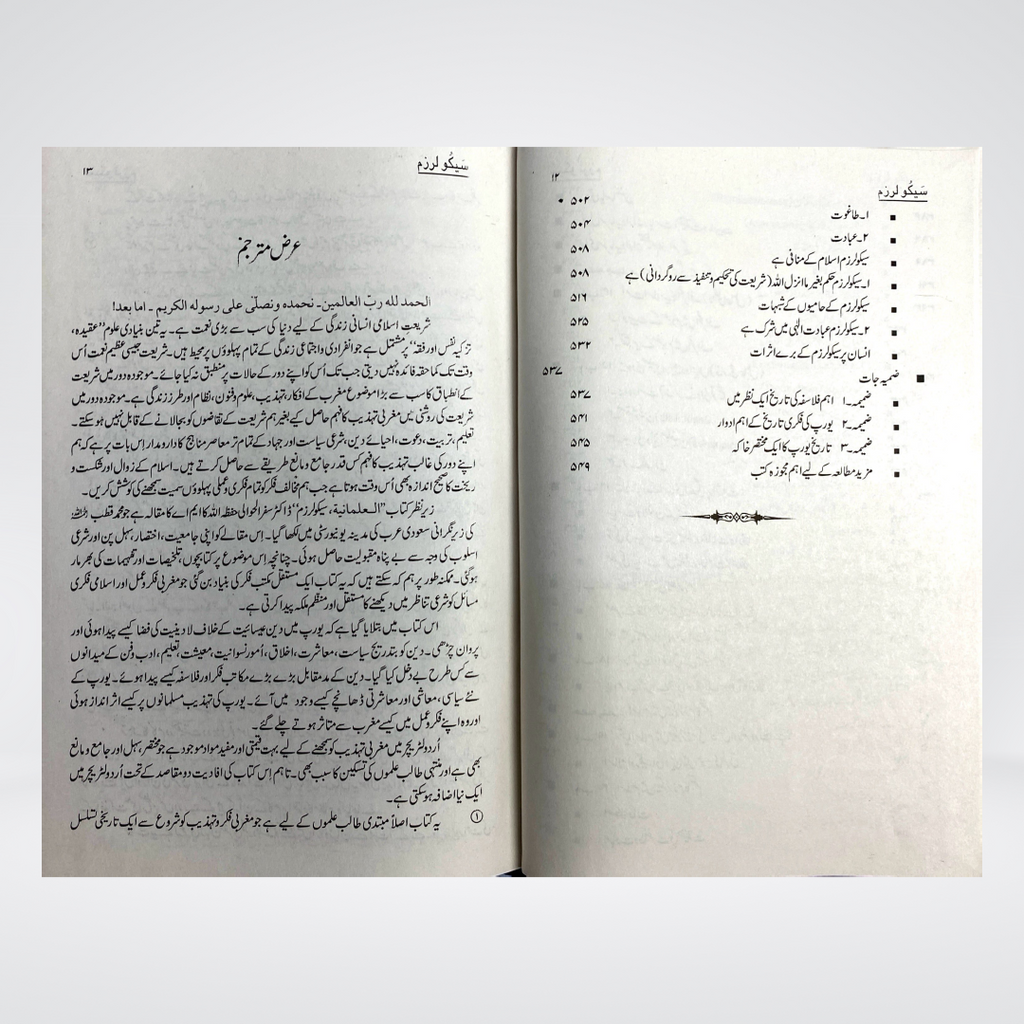 ۱۲
سیکولرزم
۱۔ طاغوت ۵۰۲
۲۔ عبادت ۵۰۴
سیکولرزم اسلام کے منافی ہے ۵۰۸
۱۔ سیکولرزم حکم بغیر ما انزل اللہ (شریعت کی تحکیم و تنفیذ سے روگردانی) ہے ۵۰۸
سیکولرزم کے حامیوں کے شبہات ۵۱۶
۲۔ سیکولرزم عبادت الٰہی میں شرک ہے ۵۲۵
انسان پر سیکولرزم کے برے اثرات ۵۳۲
ضمیمہ جات ۵۳۷
ضمیمہ۔۱ اہم فلاسفہ کی تاریخ ایک نظر میں ۵۳۷
ضمیمہ۔۲ یورپ کی فکری تاریخ کے اہم ادوار ۵۴۱
ضمیمہ۔۳ تاریخ یورپ کا ایک مختصر خاکہ ۵۴۵
مزید مطالعہ کے لیے اہم مجوزہ کتب ۵۴۹
سیکولرزم ۱۳
عرض مترجم
الحمد لله ربّ العالمين۔ نحمده ونصلّى على رسوله الكريم ۔ اما بعد!
شریعت اسلامی انسانی زندگی کے لیے دنیا کی سب سے بڑی نعمت ہے۔ یہ تین بنیادی علوم ”عقیدہ،
تزکیہ نفس اور فقہ“ پر مشتمل ہے جو انفرادی و اجتماعی زندگی کے تمام پہلوؤں پر محیط ہیں۔ شریعت جیسی عظیم نعمت اُس
وقت تک کما حقہ فائدہ نہیں دیتی جب تک اُس کو اپنے دور کے حالات پر منطبق نہ کیا جائے۔ موجودہ دور میں شریعت
کے انطباق کا سب سے بڑا موضوع مغرب کے افکار، تہذیب، علوم و فنون، نظام اور طرز زندگی ہے۔ موجودہ دور میں
شریعت کی روشنی میں مغربی تہذیب کا فہم حاصل کیے بغیر ہم شریعت کے تقاضوں کو بجالانے کے قابل نہیں ہو سکتے۔
تعلیم، تربیت، دعوت، احیائے دین، شرعی سیاست اور جہاد کے تمام تر معاصر مناہج کا دارومدار اِس بات پر ہے کہ ہم
اپنے دور کی غالب تہذیب کا فہم کس قدر جامع و مانع طریقے سے حاصل کرتے ہیں۔ اسلام کے زوال اور شکست و
ریخت کا صحیح اندازہ بھی اُس وقت ہوتا ہے جب ہم مخالف فکر کو تمام فکری و عملی پہلوؤں سمیت سمجھنے کی کوشش کریں۔
زیر نظر کتاب ”العلمانية، سیکولرزم“ ڈاکٹر سفر الحوالی حفظہ اللہ کا ایم اے کا مقالہ ہے جو محمد قطب رحمہ اللہ
کی زیر نگرانی سعودی عرب کی مدینہ یونیورسٹی میں لکھا گیا۔ اِس مقالے کو اپنی جامعیت، اختصار، سہل پن اور شرعی
اسلوب کی وجہ سے بے پناہ مقبولیت حاصل ہوئی۔ چنانچہ اِس موضوع پر کتابچوں، تلخیصات اور تفہیمات کی بھرمار
ہوگئی۔ ممکنہ طور پر ہم کہہ سکتے ہیں کہ یہ کتاب ایک مستقل مکتب فکر کی بنیاد بن گئی جو مغربی فکر و عمل اور اسلامی فکری
مسائل کو شرعی تناظر میں دیکھنے کا مستقل اور منظم ملکہ پیدا کرتی ہے۔
اس کتاب میں بتلایا گیا ہے کہ یورپ میں دین عیسائیت کے خلاف لا دینیت کی فضا کیسے پیدا ہوئی اور
پروان چڑھی۔ دین کو بتدریج سیاست، معاشرت، اخلاق، اُمور نسوانیت، معیشت، تعلیم، ادب و فن کے میدانوں
سے کس طرح بے دخل کیا گیا۔ دین کے مدمقابل بڑے بڑے مکاتب فکر اور فلاسفہ کیسے پیدا ہوئے۔ یورپ کے
نئے سیاسی، معاشی اور معاشرتی ڈھانچے کیسے وجود میں آئے۔ یورپ کی تہذیب مسلمانوں پر کیسے اثر انداز ہوئی
اور وہ اپنے فکر و عمل میں کیسے مغرب سے متاثر ہوتے چلے گئے۔
اُردو لٹریچر میں مغربی تہذیب کو سمجھنے کے لیے بہت قیمتی اور مفید مواد موجود ہے جو مختصر، سہل اور جامع و مانع
بھی ہے اور منتہی طالب علموں کی تسکین کا سبب بھی۔ تاہم اِس کتاب کی افادیت دو مقاصد کے تحت اُردو لٹریچر میں
ایک نیا اضافہ ہو سکتی ہے۔
① یہ کتاب اصلاً مبتدی طالب علموں کے لیے ہے جو مغربی فکر و تہذیب کو شروع سے ایک تاریخی تسلسل